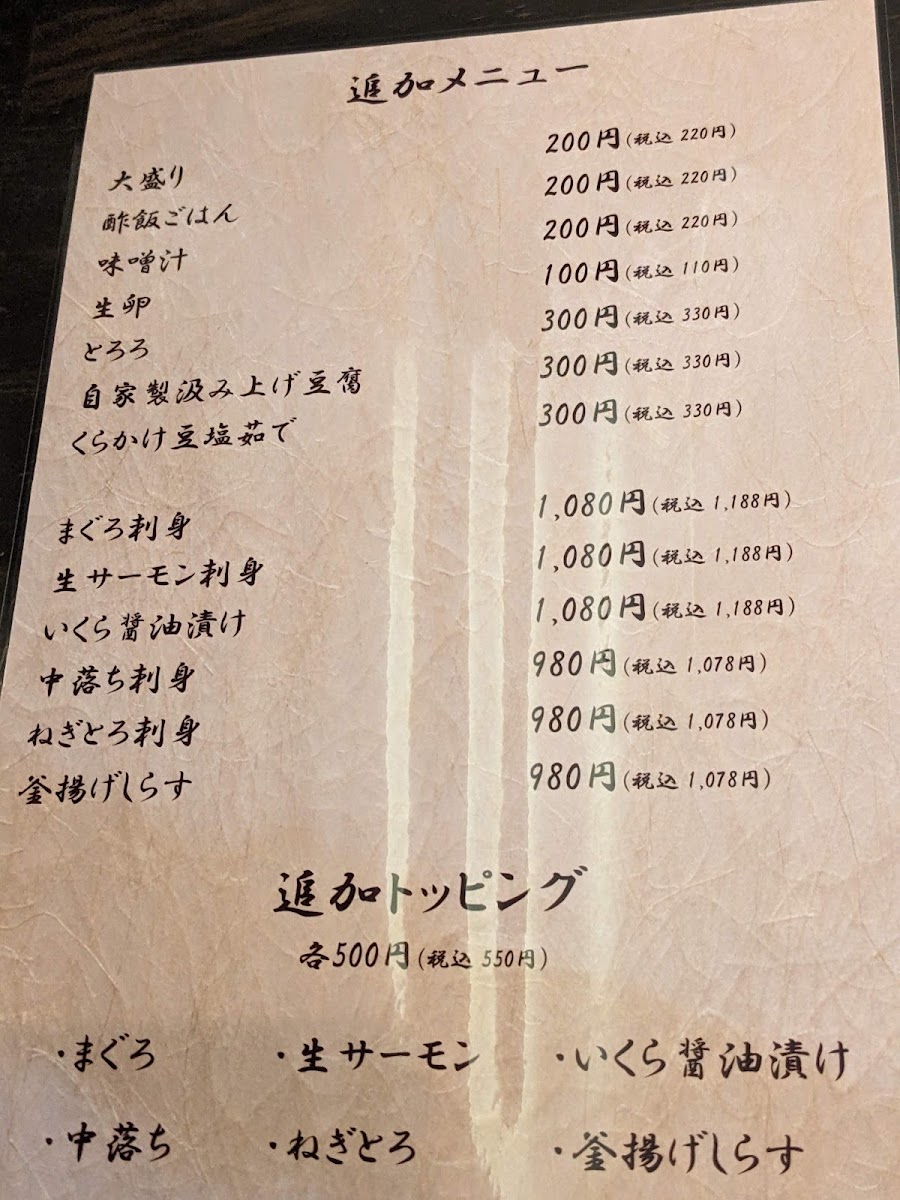 追加メニュー
大盛り 200円(税込 220円)
酢飯ごはん 200円(税込 220円)
味噌汁 200円(税込 220円)
生卵 100円(税込 110円)
とろろ 300円(税込 330円)
自家製汲み上げ豆腐 300円(税込 330円)
くらかけ豆塩茹で 300円(税込 330円)
まぐろ刺身 1,080円(税込 1,188円)
生サーモン刺身 1,080円(税込 1,188円)
いくら醤油漬け 1,080円(税込 1,188円)
中落ち刺身 980円(税込 1,078円)
ねぎとろ刺身 980円(税込 1,078円)
釜揚げしらす 980円(税込 1,078円)
追加トッピング
各500円(税込 550円)
・まぐろ ・生サーモン ・いくら醤油漬け
・中落ち ・ねぎとろ ・釜揚げしらす